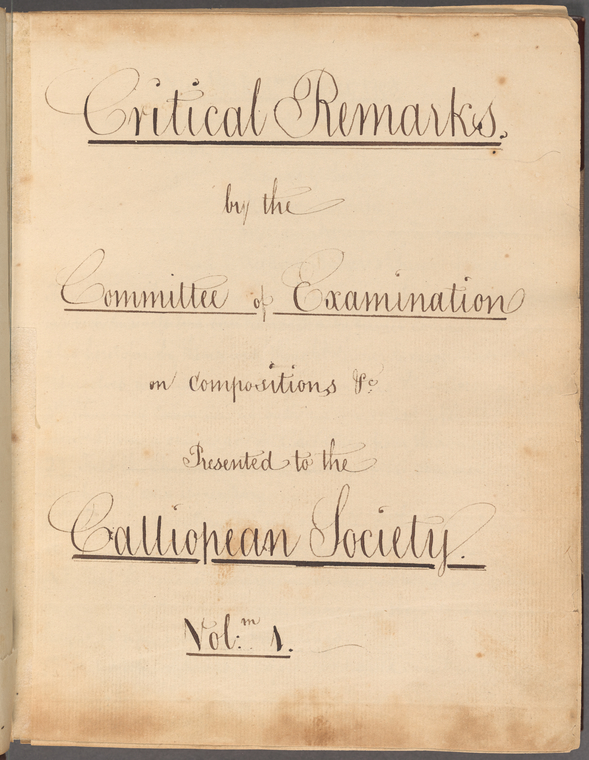 Critical Remarks.
by the
Committee of Examination
on Compositions &c
Presented to the
Calliopean Society.
Vol.m 1.